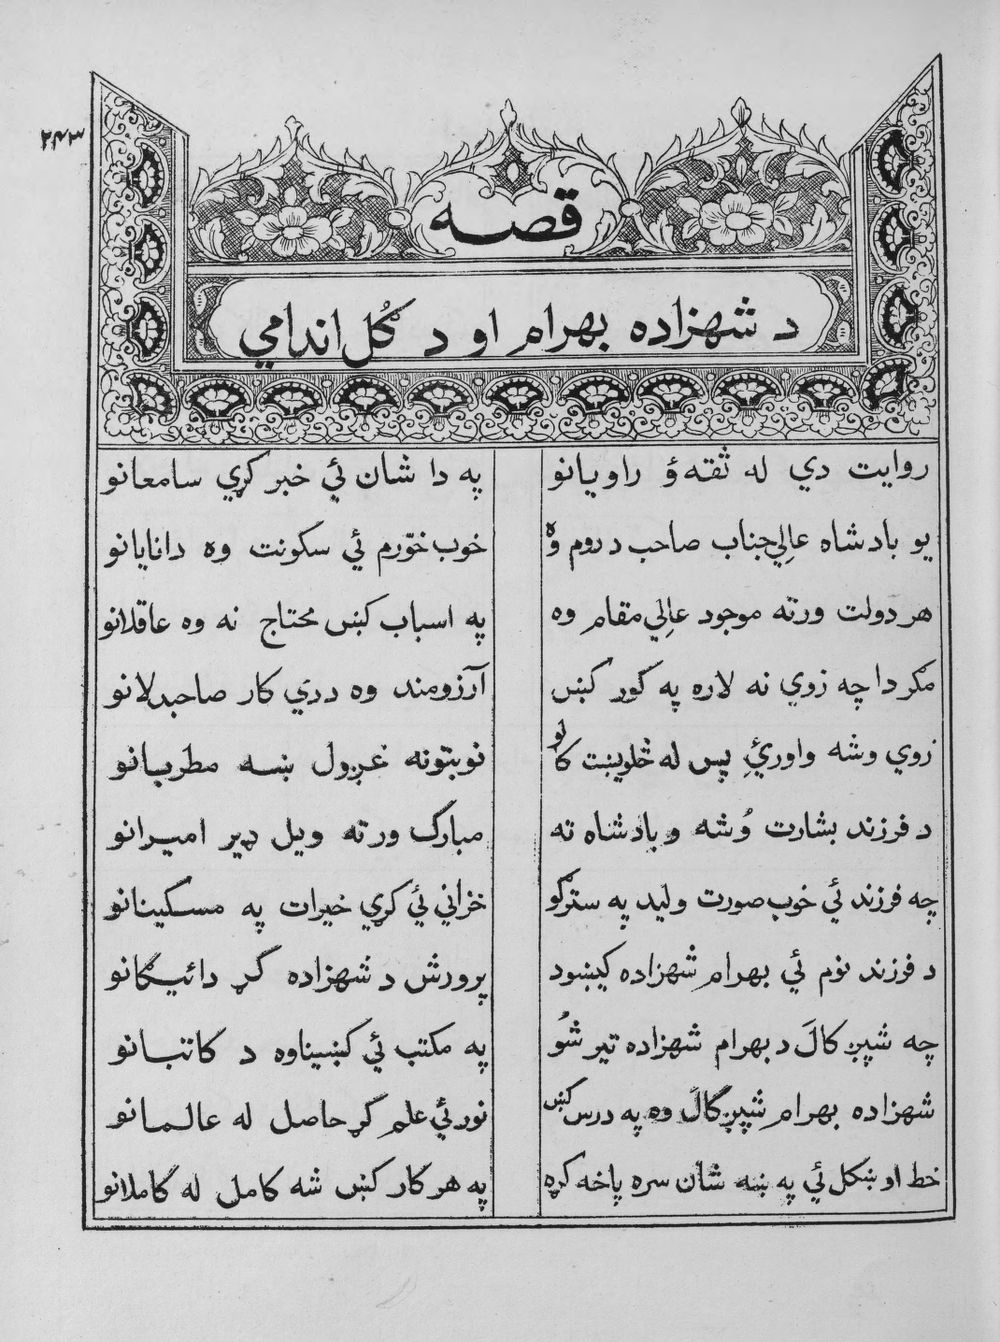 ۲۴۳
قصه
د شهزاده بهرام او د ګل اندامي
روايت دي له ثقه ؤ راويانو
په دا شان ئي خبر کړي سامعانو
يو بادشاه عالِي جناب صاحب د روم وهٔ
خوب خوّرم ئي سکونت وه دانايانو
هر دولت ورته موجود عالِي مقام وه
په اسباب کښ محتاج نه وه عاقلانو
مګر دا چه زوي نه لاره په کور کښ
آرزومند وه د دي کار صاحبدلانو
زوي وشه واورئِ پس له څلويښت کالو
نوبتونه غږول ښه مطربانو
د فرزند بشارت وُشه و بادشاه ته
مبارک ورته ويل ډير اميرانو
چه فرزند ئي خوب صورت وليد په سترګو
خزاني ئي کړي خيرات په مسکينانو
د فرزند نوم ئي بهرام شهزاده کيښود
پرورش د شهزاده کړ دائيګانو
چه شپږ کالَ د بهرام شهزاده تير شُو
په مکتب ئي کښيناوه د کاتبانو
شهزاده بهرام شپږ کالَ وه په درس کښ
نور ئي علم کړ حاصل له عالمانو
خط او ښکل ئي په ښه شان سره پاخه کړه
په هر کار کښ شه کامل له کاملانو